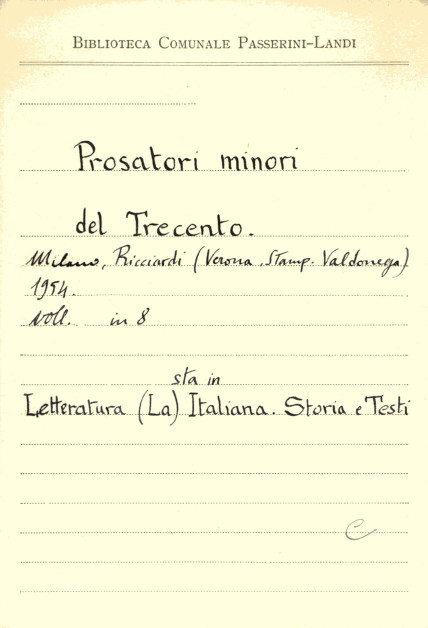 BIBLIOTECA COMUNALE PASSERINI-LANDI
Prosatori minori
del Trecento.
Milano, Ricciardi (Verona, Stamp. Valdonega)
1954.
voll. in 8
sta in
Letteratura (La) Italiana. Storia e Testi
C